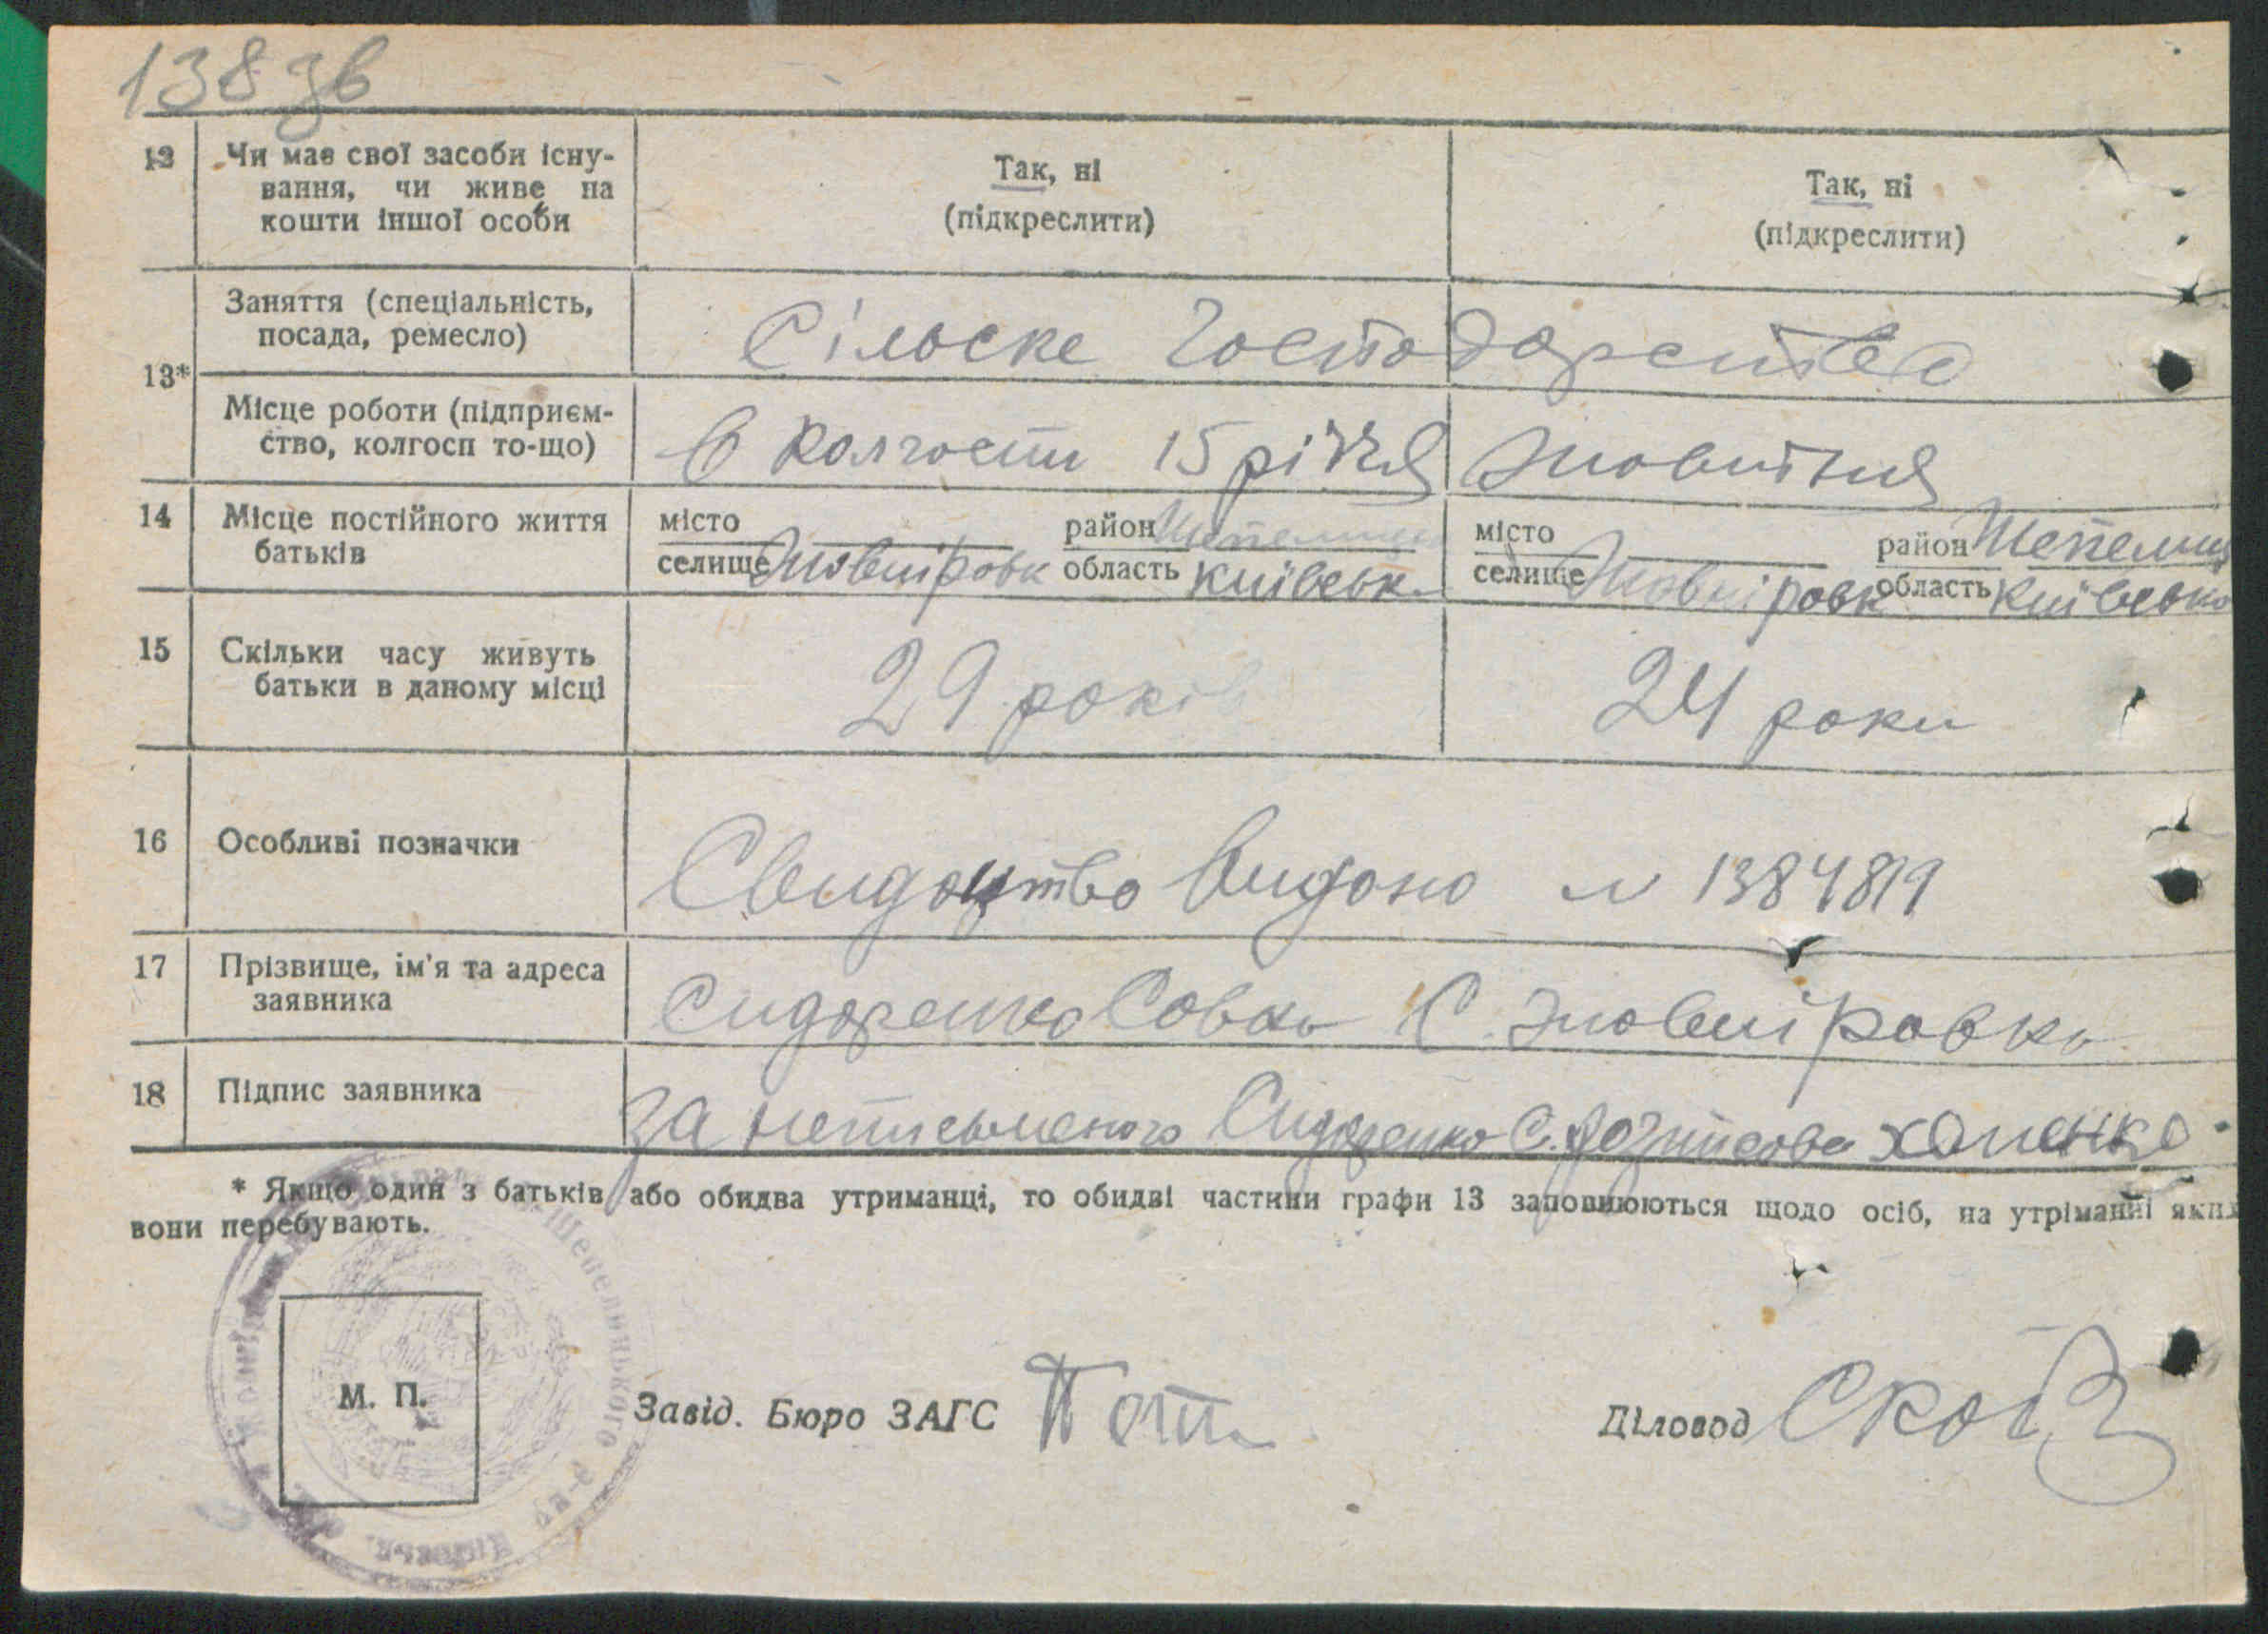 138 зв
12 Чи має свої засоби існу-
вання, чи живе на
кошти іншої особи
Так, ні
(підкреслити)
Так, ні
(підкреслити)
13*
Заняття (спеціальність,
посада, ремесло)
Сільске Господарство
Місце роботи (підприєм-
ство, колгосп то-що)
В колгоспи 15 річчя Жовтня
14 Місце постійного життя
батьків
місто район
селище область Київськ
місто район Шепелич
селище область Київсько
15 Скільки часу живуть
батьки в даному місці
29 років
24 роки
16 Особливі позначки
Свидоцтво Видоно N 1384819
17 Прізвище, ім'я та адреса
заявника
Сидоренко Совка С.
18 Підпис заявника
За неписьменого Сидоренко С. розписовсь Хоменко
* Якщо один з батьків або обидва утриманці, то обидві частини графи 13 заповнюються щодо осіб, на утріманні яких
вони перебувають.
М. П.
Завід. Бюро ЗАГС
Діловод